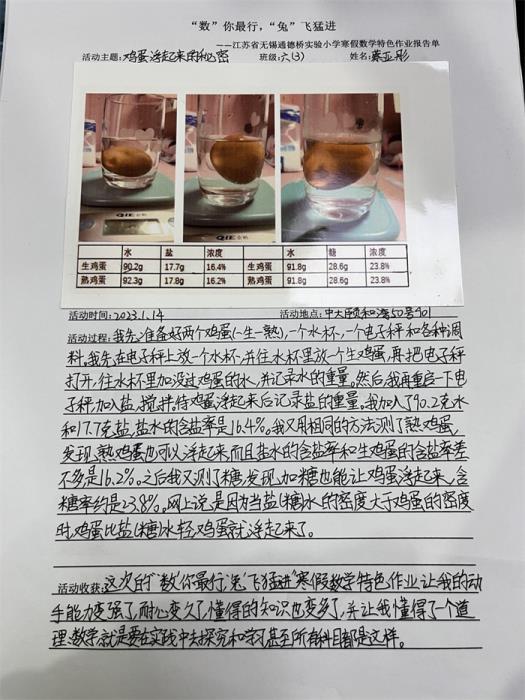 “数”你最行，“兔”飞猛进
——江苏省无锡通德桥实验小学寒假数学特色作业报告单
活动主题：鸡蛋浮起来的秘密 班级：六(3) 姓名：蔡亚彤
QIE
QIE
水 盐 浓度 水 糖 浓度
生鸡蛋 90.2g 17.7g 16.4% 生鸡蛋 91.8g 28.6g 23.8%
熟鸡蛋 92.3g 17.8g 16.2% 熟鸡蛋 91.8g 28.6g 23.8%
活动时间：2023.1.14 活动地点：中大颐和湾50号901
活动过程：我先准备好两个鸡蛋(一生一熟)，一个水杯，一个电子秤和各种调
料。我先在电子秤上放一个水杯，并往水杯里放一个生鸡蛋，再把电子秤
打开，往水杯里加没过鸡蛋的水，并记录水的重量。然后，我再重启一下电
子秤，加入盐，搅拌。待鸡蛋浮起来后记录盐的重量。我加入了90.2克水
和17.7克盐，盐水的含盐率是16.4%。我又用相同的方法测了熟鸡蛋，
发现，熟鸡蛋也可以浮起来，而且盐水的含盐率和生鸡蛋的含盐率差
不多是16.2%。之后我又测了糖，发现，加糖也能让鸡蛋浮起来，含
糖率约是23.8%。网上说，是因为当盐(糖)水的密度大于鸡蛋的密度
时，鸡蛋比盐(糖)水轻，鸡蛋就浮起来了。
活动收获：这次的“数”你最行，“兔”飞猛进”寒假数学特色作业，让我的动
手能力变强了，耐心变久了，懂得的知识也变多了，并让我懂得了一个道
理：数学就是要在实践中去探究和学习，甚至所有科目都是这样。